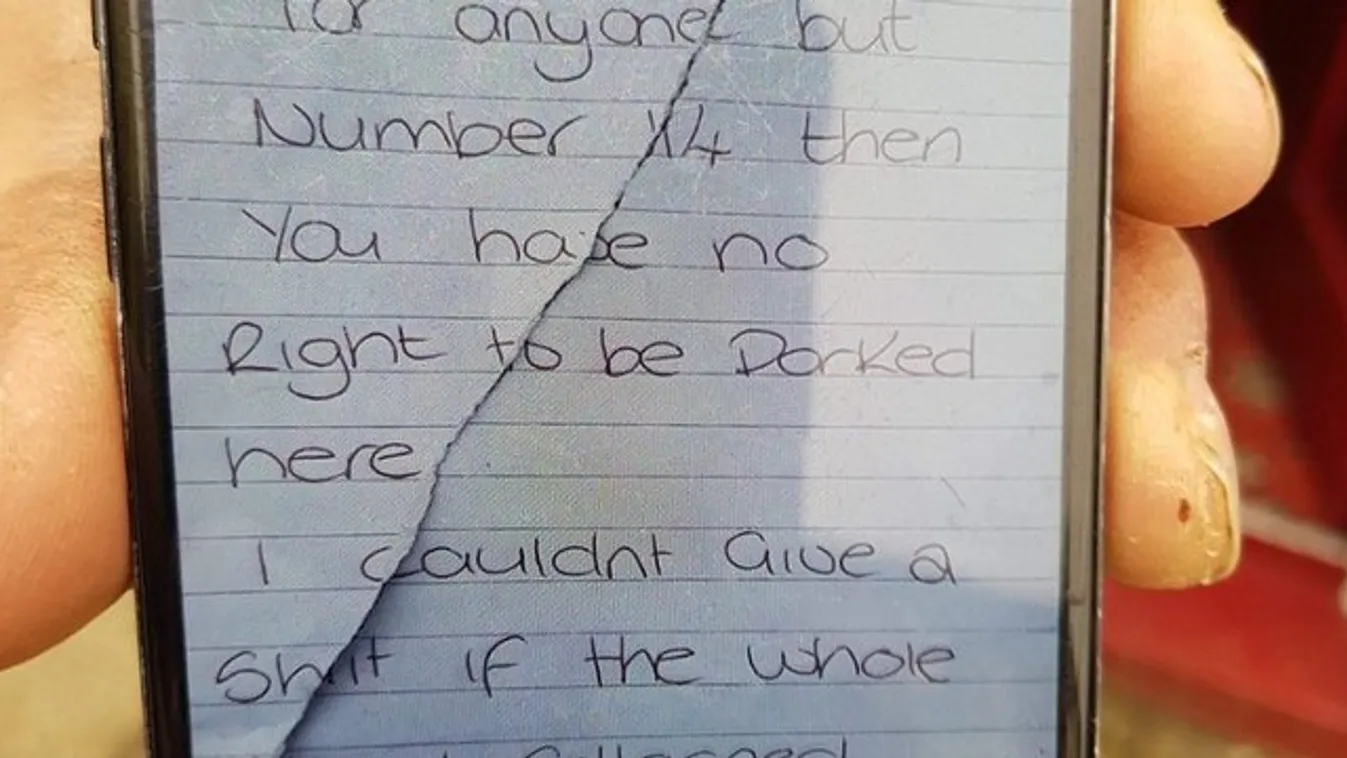 for anyone but
Number 14 then
You have no
Right to be Parked
here
I couldnt Give a
Shit if the whole
collapsed